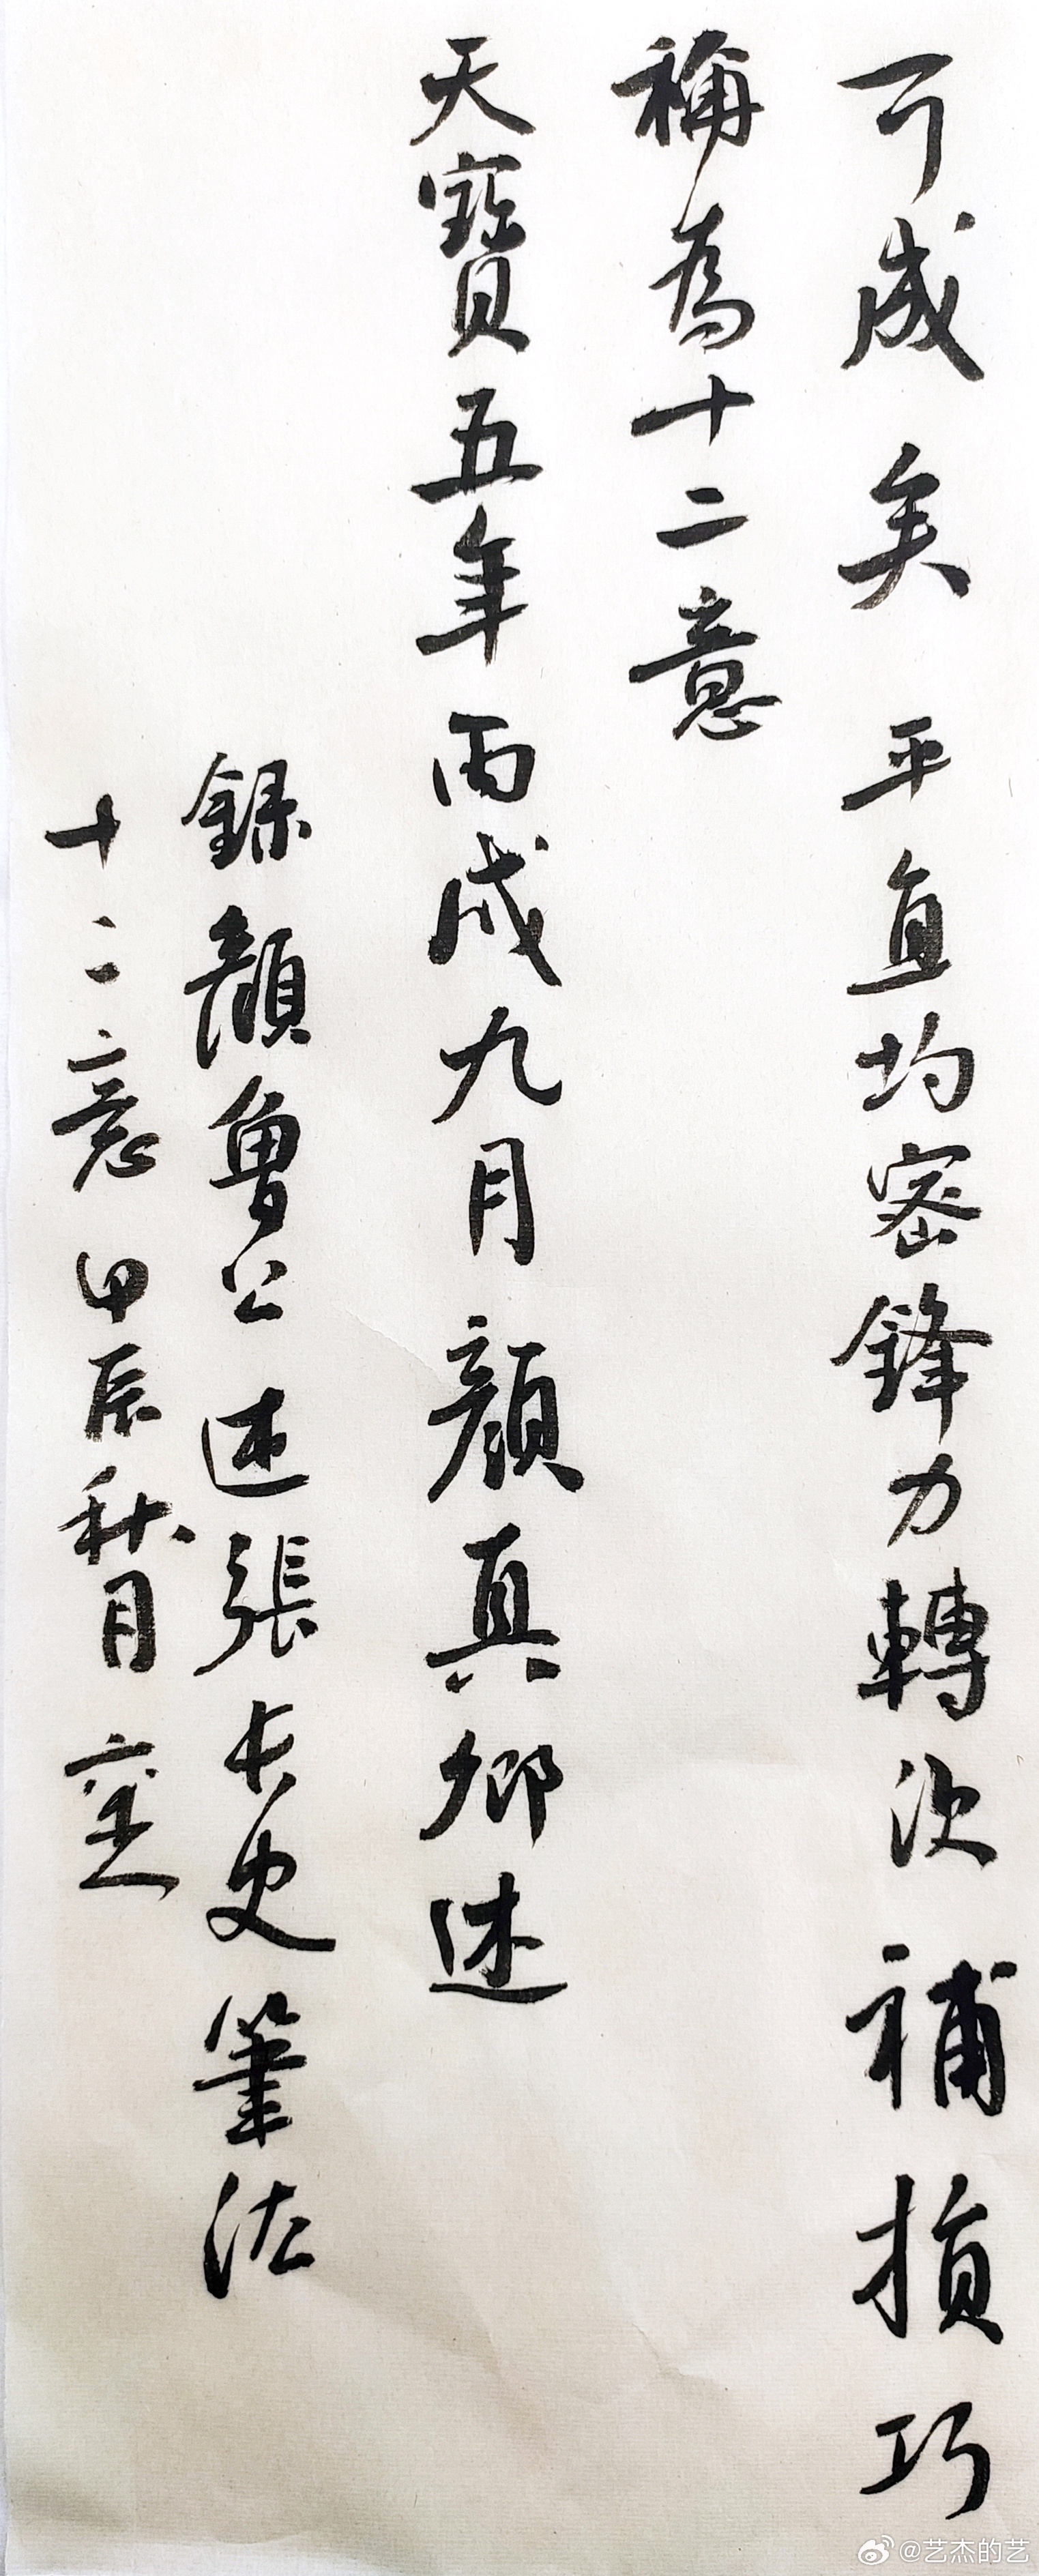 可成矣平直均密鋒力轉次補損巧
稱為十二意
天寶五年丙戌九月顏真卿述
錄顏魯公述張長史筆法
十二意甲辰秋月
@艺杰的艺